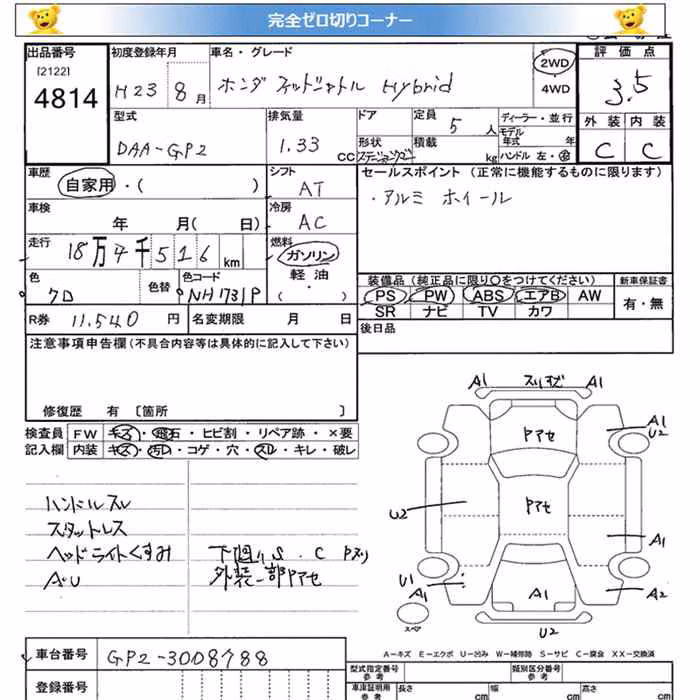 完全ゼロ切りコーナー
出品番号
[2122]
4814
初度登録年月
H23 8月
車名・グレード
ホンダ フィットシャトル Hybrid
2WD
4WD
評価点
3.5
外装 内装
C C
型式
DAA-GP2
排気量
1.33
CC
ドア
形状
ステーションワゴン
定員
5人
積載
kg
ディーラー・並行
モデル
年式 年
ハンドル 左・右
車歴
自家用・( )
シフト
AT
セールスポイント(正常に機能するものに限ります)
・アルミ ホイール
車検
年 月( 日)
冷房
AC
走行
18万4千516km
燃料
ガソリン
軽油
( )
色
クロ
色替
色コード
NH731P
装備品(純正品に限り○をつけてください)
新車保証書
PS PW ABS エアB AW
SR ナビ TV カワ
有・無
R券 11,540 円
名変期限 月 日
後日品
注意事項申告欄(不具合内容等は具体的に記入して下さい)
修復歴 有 〔箇所 〕
検査員
記入欄
FW キズ・飛石・ヒビ割・リペア跡・×要
内装 キズ・汚れ・コゲ・穴・スレ・キレ・破レ
ハンドルスレ
スタットレス
ヘッドライトくすみ
AU
下廻りS.C Pスリ
外装一部Pアセ
A1 スリキズ A1
A1
U2
Pアセ
Pアセ
U2
A1
U1
A1
A1
A2
U2
スペア
A-キズ E-エクボ U-凹み W-補修跡 S-サビ C-腐食 XX-交換済
車台番号
GP2-3008788
登録番号
型式指定番号
参考
類別区分番号
参考
車庫証明用
参考
長さ cm
幅 cm
高さ cm